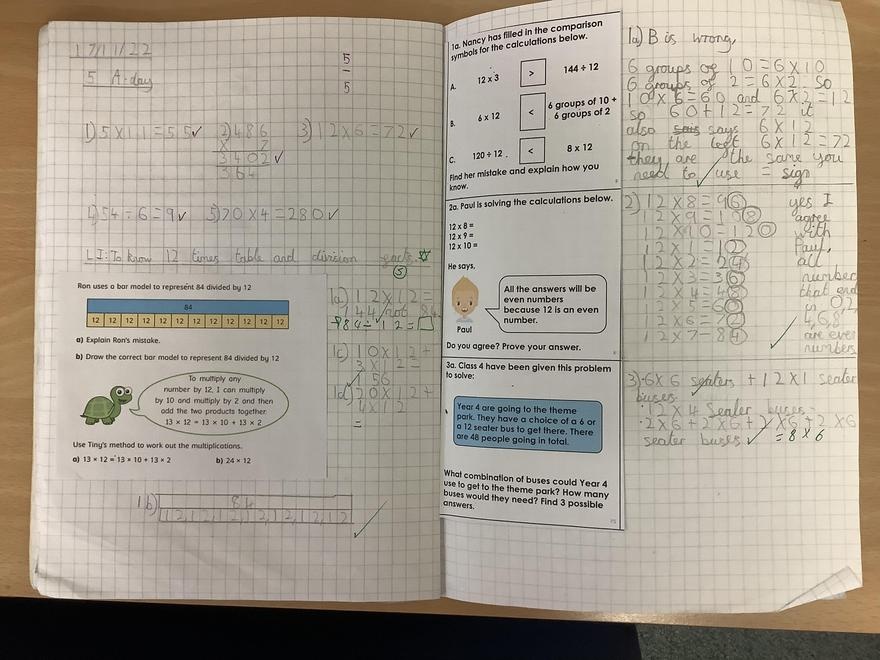 17/11/22
5 A-day
5
5
1) 5 X 11 = 55 ✓
2) 486
X 7
3402 ✓
364
3) 12 X 6 = 72 ✓
4) 54 ÷ 6 = 9 ✓
5) 70 X 4 = 280 ✓
LI: To know 12 times table and division facts.
S
Ron uses a bar model to represent 84 divided by 12
84
12 12 12 12 12 12 12 12 12 12 12 12
a) Explain Ron's mistake.
b) Draw the correct bar model to represent 84 divided by 12
To multiply any
number by 12, I can multiply
by 10 and multiply by 2 and then
add the two products together.
13 × 12 = 13 × 10 + 13 × 2
Use Tiny's method to work out the multiplications.
a) 13 × 12 = 13 × 10 + 13 × 2
b) 24 × 12
1a) 12 X 12 =
144 not 84.
84 ÷ 12 = □
1c) 10 X 12 +
3 X 12 =
156
1d) 20 X 12 +
4 X 12
=
1b)
84
12, 12, 12, 12, 12, 12, 12
1a. Nancy has filled in the comparison
symbols for the calculations below.
A. 12 x 3 > 144 ÷ 12
B. 6 x 12 < 6 groups of 10 +
6 groups of 2
C. 120 ÷ 12 . < 8 x 12
Find her mistake and explain how you
know.
2a. Paul is solving the calculations below.
12 x 8 =
12 x 9 =
12 x 10 =
He says,
All the answers will be
even numbers
because 12 is an even
number.
Paul
Do you agree? Prove your answer.
3a. Class 4 have been given this problem
to solve:
Year 4 are going to the theme
park. They have a choice of a 6 or
a 12 seater bus to get there. There
are 48 people going in total.
What combination of buses could Year 4
use to get to the theme park? How many
buses would they need? Find 3 possible
answers.
1a) B is wrong,
6 groups of 10 = 6 X 10
6 groups of 2 = 6 X 2. So
10 X 6 = 60 and 6 X 2 = 12
so 60 + 12 = 72 it
also says 6 X 12
on the left 6 X 12 = 72
they are the same you
need to use = sign
2) 12 X 8 = 96 yes I
12 X 9 = 108 agree
12 X 10 = 120 with
12 X 1 = 12 Paul,
12 X 2 = 24 all
12 X 3 = 36 number
12 X 4 = 48 that end
12 X 5 = 60 in 0,2
12 X 6 = 72 4,6,8,
12 X 7 = 84 are even
numbers
3) • 6 X 6 seaters + 12 X 1 seater
buses.
• 12 X 4 Seater buses.
• 2 X 6 + 2 X 6 + 2 X 6 + 2 X 6
seater buses ✓ = 8 X 6